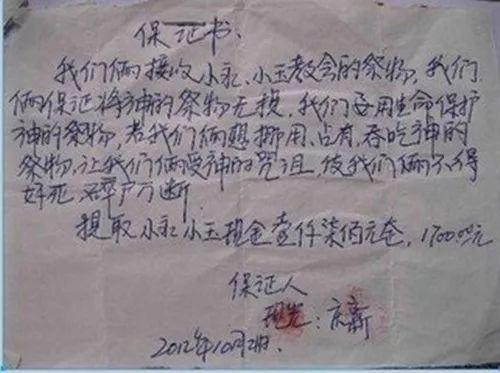 保证书.
我们俩接收小永、小玉教会的祭物,我们
俩保证将神的祭物无损,我们要用生命保护
神的祭物,若我们俩想挪用、占有、吞吃神的
祭物,让我们俩受神的咒诅,使我们俩不得
好死,
提取小永小玉现金壹仟柒佰元全,1700.00元
保证人
2012年10月2